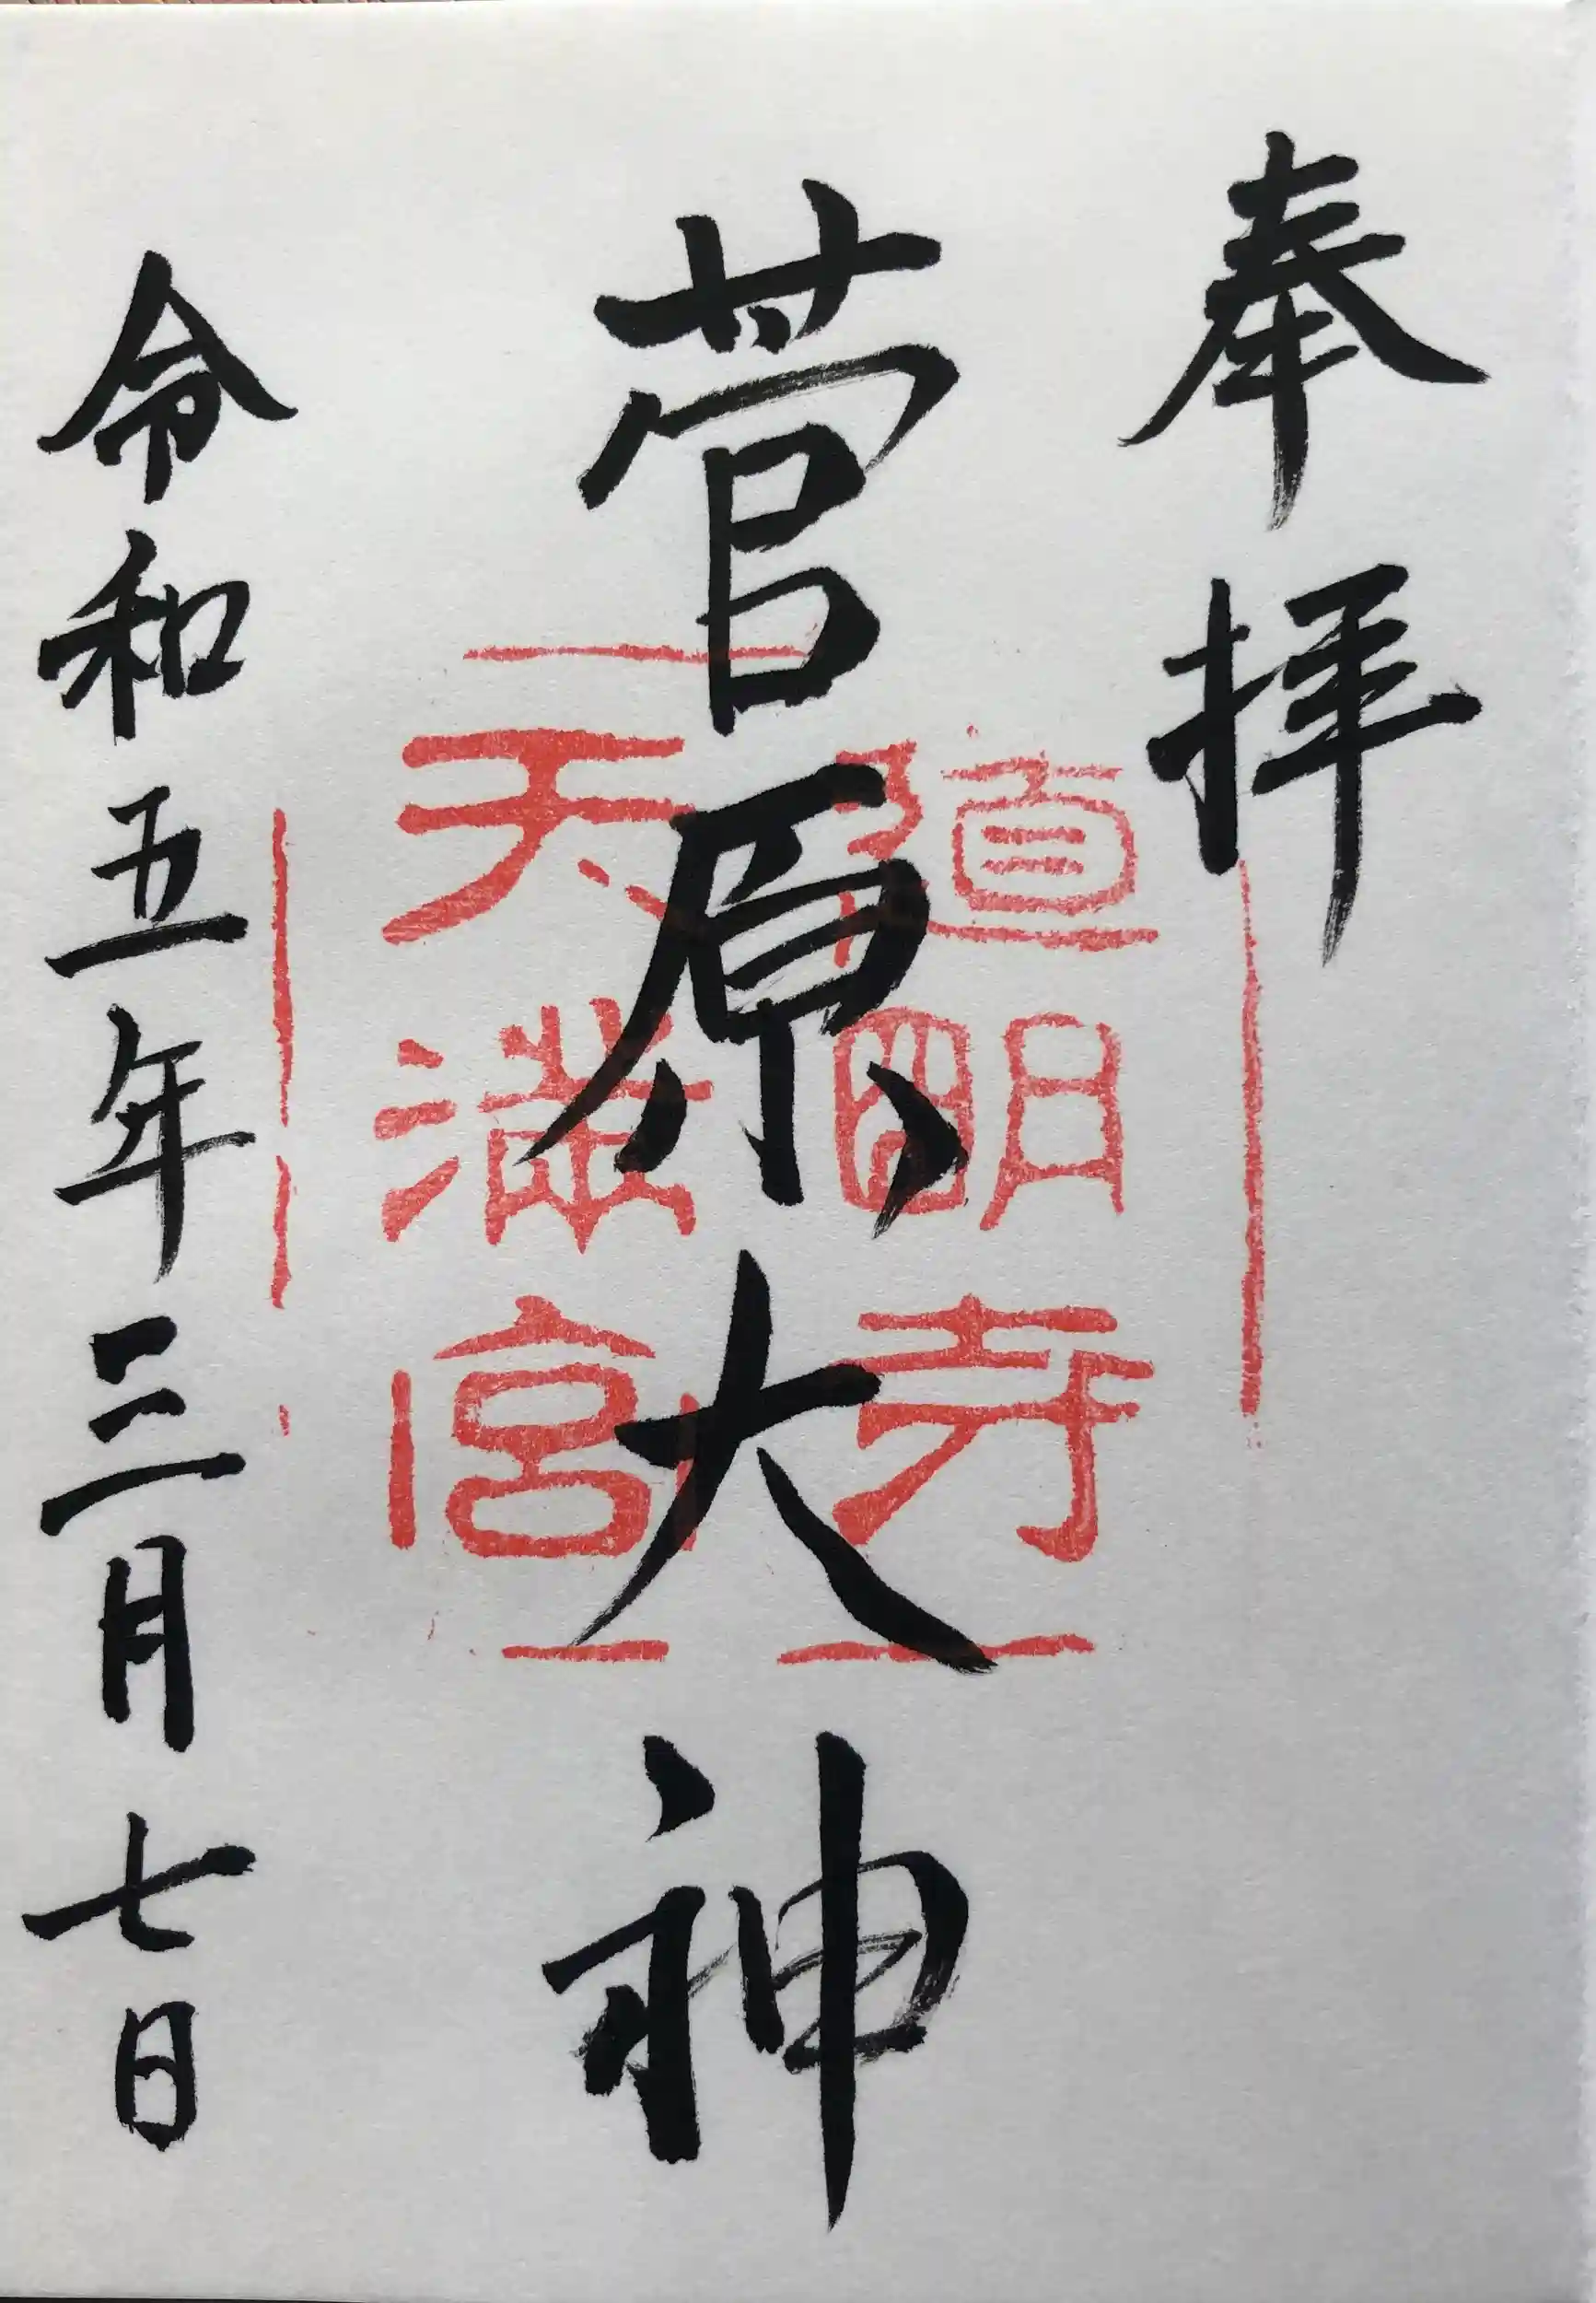 奉拝
菅原大神
道明寺
天満宮
令和五年三月七日